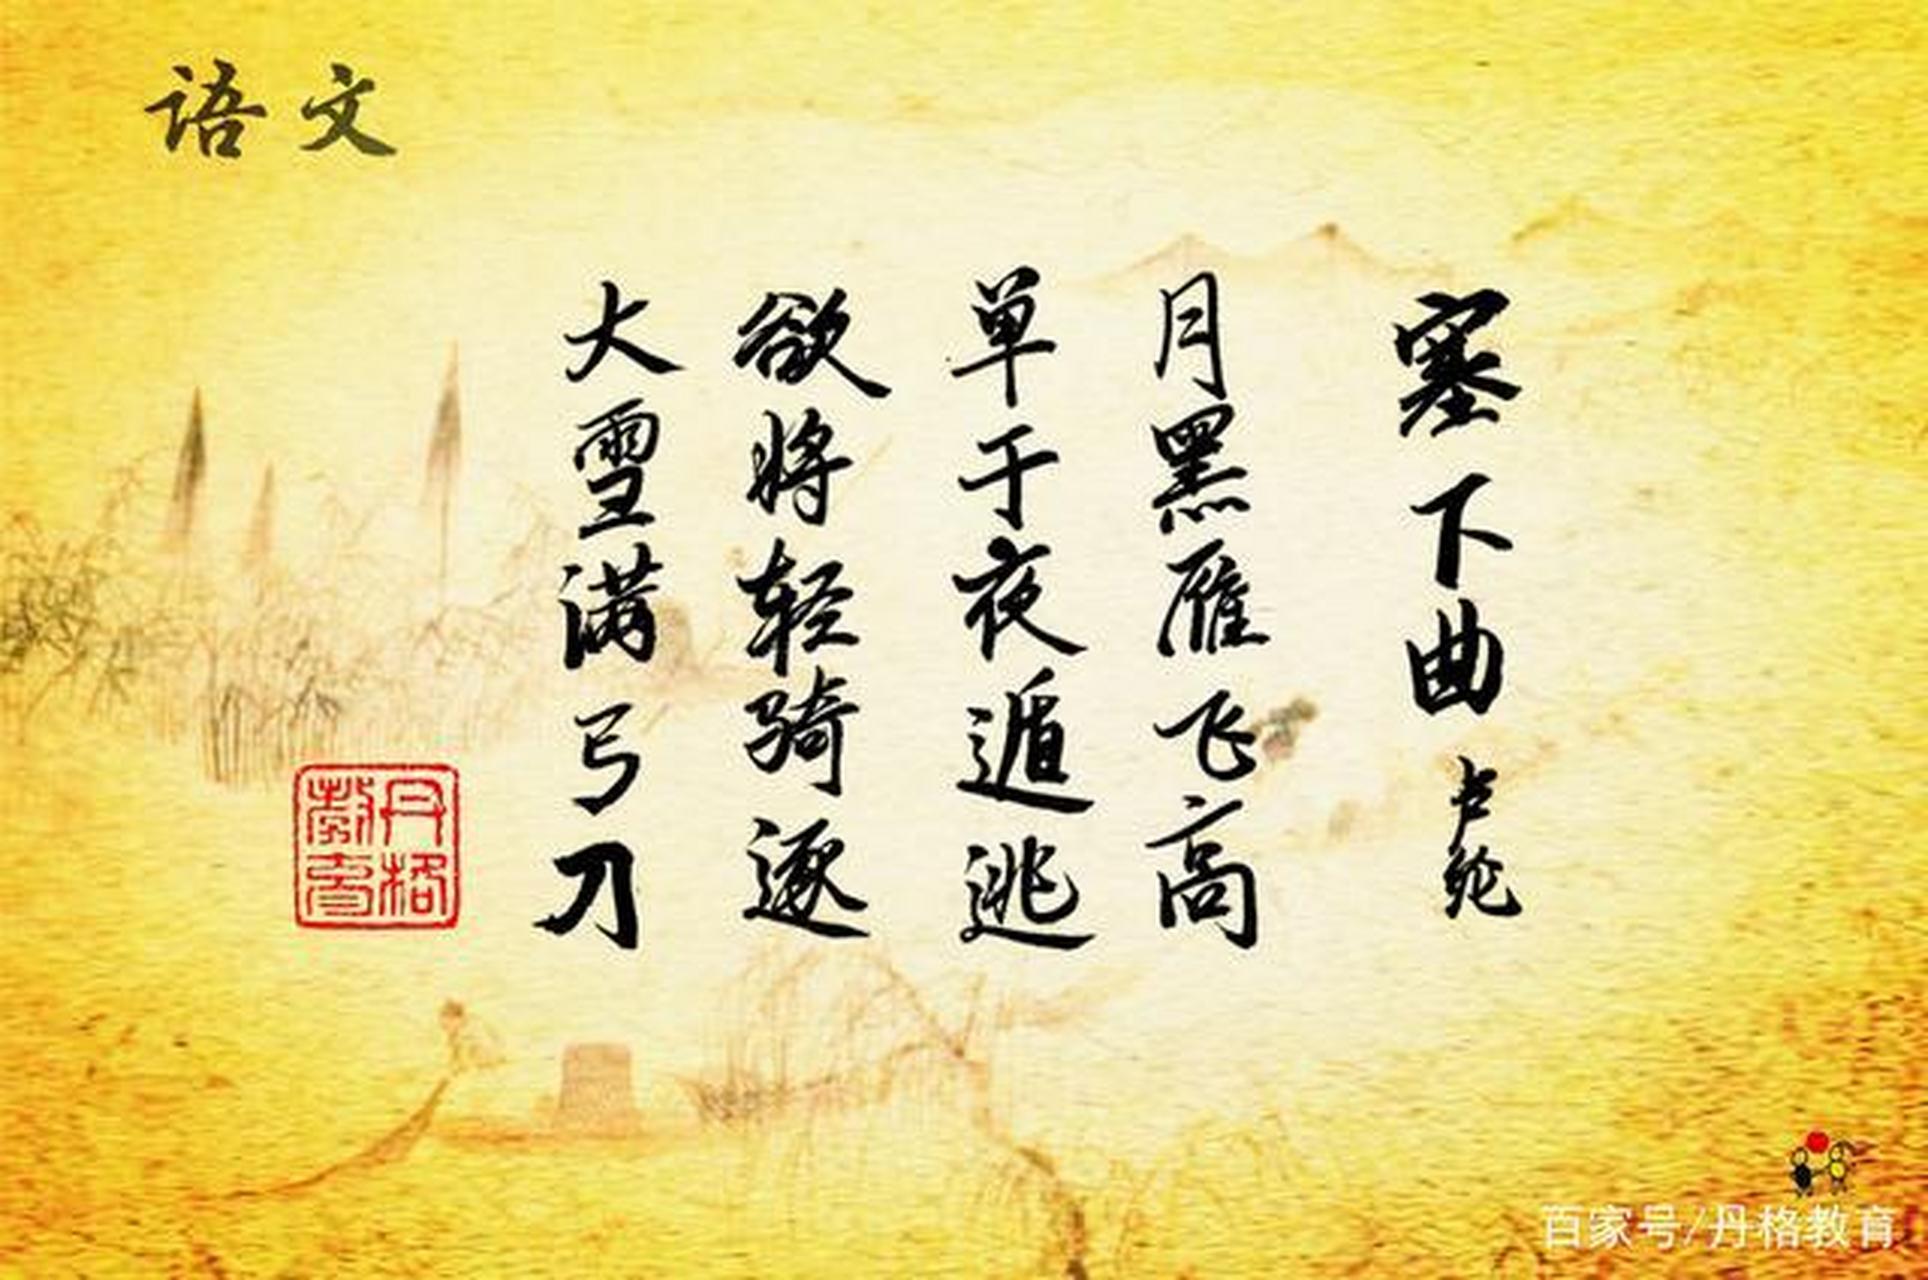 语文
塞下曲 卢纶
月黑雁飞高
单于夜遁逃
欲将轻骑逐
大雪满弓刀
丹格教育
百家号/丹格教育